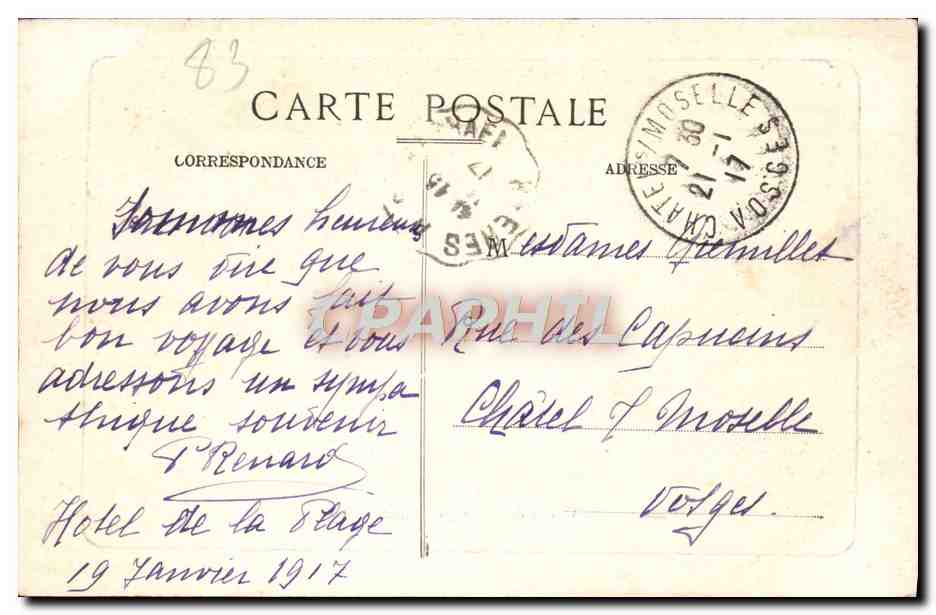 83
CARTE POSTALE
CORRESPONDANCE
ADRESSE
CHATEL S/ MOSELLE VOSGES
7 30
21 -1
17
heureux
de vous dire que
nous avons fait
bon voyage et vous
adressons un sympa
thique souvenir
P Renard
Hotel de la Plage
19 Janvier 1917
Mesdames
Rue des Capucins
Châtel s/ Moselle
Vosges.
CPAPHIL